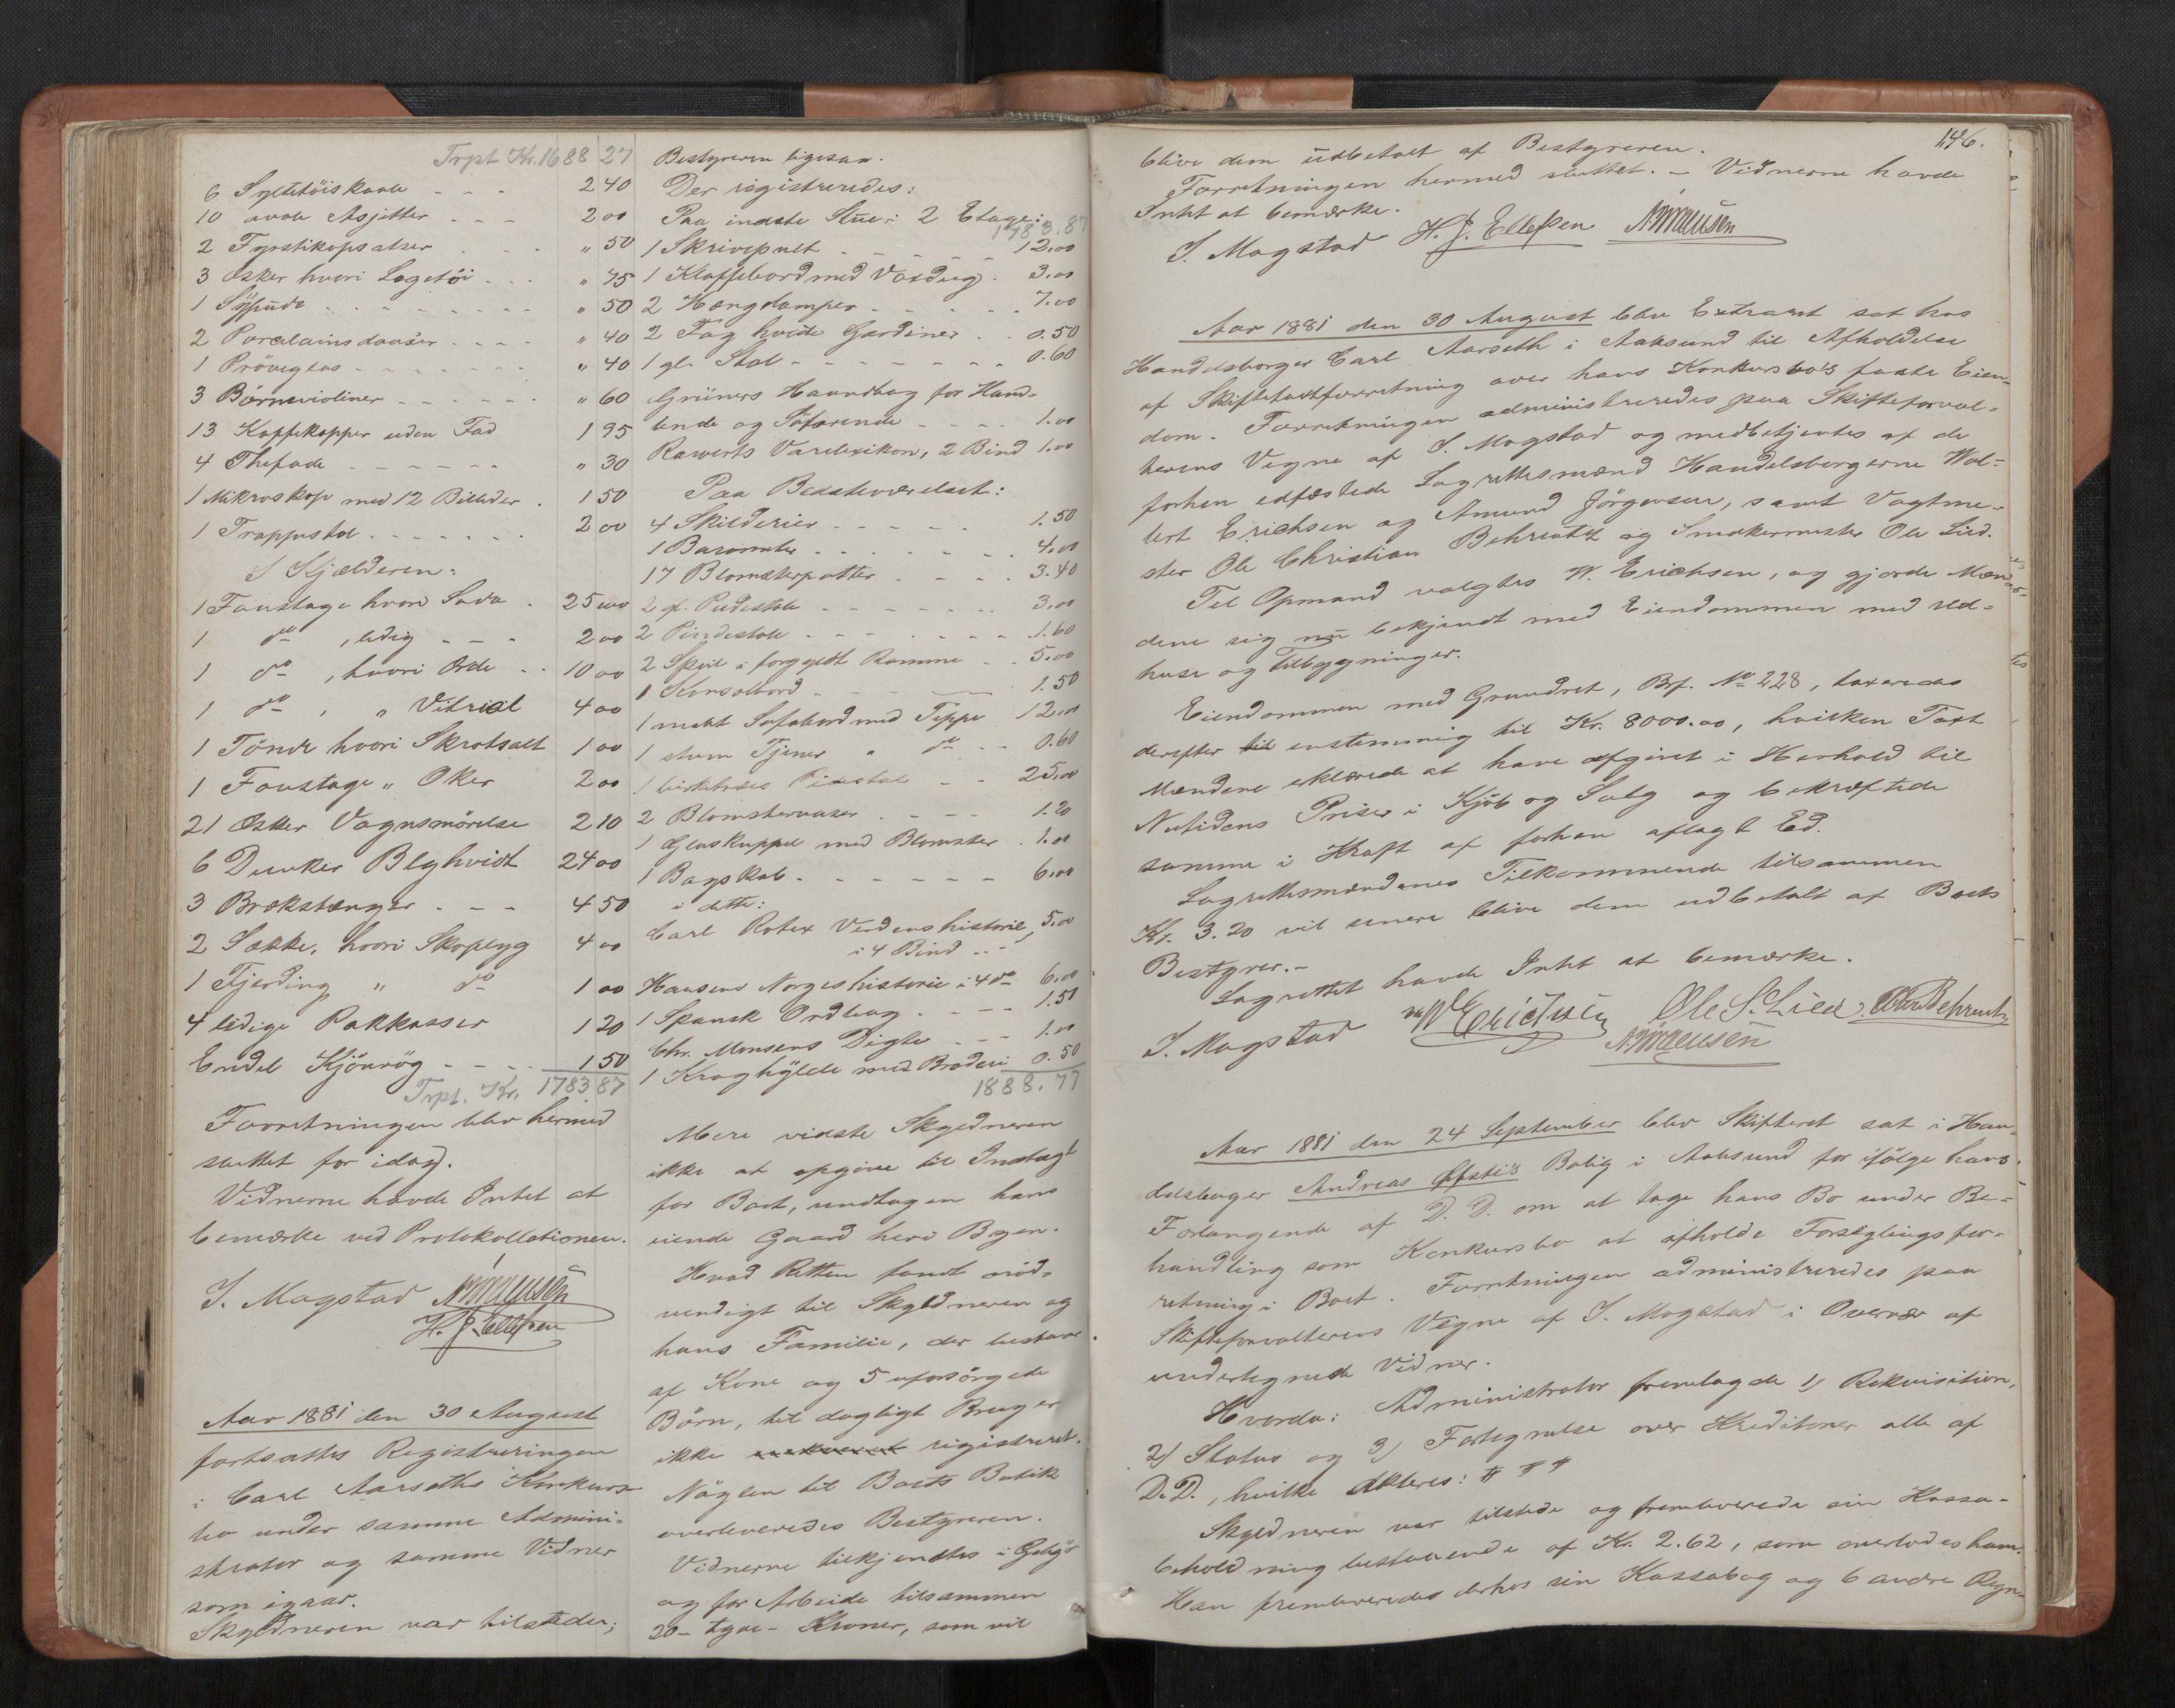 Trpt Kr. 1688 27
6 Syltetöiskaale - - - 2 40
10 ovale Asjetter - - - 2 00
2 Fyrstikopsatser - - - " 50
3 Æsker hvori Legetöi - - - " 75
1 Sypude - - - " 50
2 Porcelainsdaaser - - - " 40
1 Pröveglas - - - " 40
3 Börnevioliner - - - " 60
13 Kaffekopper uden Fad 1 95
4 Thefade - - - " 30
1 Mikroskop med 12 Billeder . 1 50
1 Trappestol - - - 2 00
I Kjælderen:
1 Foustage hvori Soda . 25 00
1 do , ledig - - - 2 00
1 do , hvori do - - 10 00
1 do , " Vitriol 4 00
1 Tönde hvori Skrotsalt 1 00
1 Foustage " Oker 2 00
21 Æsker Vognsmörelse 2 10
6 Dunker Blyhvidt 24 00
3 Brækstænger - - - 4 50
2 Sække, hvori Skoplug 4 00
1 Fjerding " do 1 00
4 ledige Pakkasser 1 20
Endel Kjönrög - - - 1 50
Trpt. Kr. 1783 87
Forretningen blev hermed
sluttet for idag.
Vidnerne havde Intet at
bemærke ved Protokollationen.
I. Magstad
H. J. Ellefsen
Aar 1881 den 30 August
fortsattes Registreringen
i Carl Aarseths Konkurs-
bo under samme Admini-
strator og samme Vidner
som igaar.
Skyldneren var tilstede;
Bestyreren ligesaa.
Der registreredes:
Paa indste Stue i 2 Etage:
1783.87
1 Skrivepult - - - 12.00
1 Klaffebord med Voxdug . 3.00
2 Hænglamper - - - 7.00
2 Fag hvide Gardiner . . 0.50
1 gl. Stol - - - 0.60
Grüners Haandbog for Hand-
lende og Söfarende - - - 1.00
Rawerts Varelexikon, 2 Bind 1.00
Paa Bedsteværelset:
4 Skilderier - - - 1.50
1 Barometer - - - 4.00
17 Blomsterpotter - - - 3.40
2 gl. Pudestole - - - 3.00
2 Pindestole - - - 1.60
2 Speil i forgyldt Ramme - - 5.00
1 Konsolbord - - - 1.50
1 malt Sofabord med Teppe 12.00
1 stum Tjener " do - - 0.60
1 birketræs - - 25.00
2 Blomstervaser - - - 1.20
1 Glaskuppel med Blomster . 1.00
1 Bogskab - - - 6.00
i dette:
Carl Rotex Verdenshistorie, 5.00
i 4 Bind - -
Hansens Norgeshistorie i 4 do 6.00
1 Spansk Ordbog - - - 1.50
Chr. Monsens Digte - - - 1.00
1 Kroghylde med Broderi 0.50
1888.77
Mere vidste Skyldneren
ikke at opgive til Indtægt
for Boet, undtagen hans
eiende Gaard heri Byen.
Hvad Retten fandt nöd-
vendigt til Skyldneren og
hans Familie, der bestaar
af Kone og 5 uforsörgede
Börn, til dagligt Brug er
ikke registreret.
Nöglen til Boets Butik
overleveredes Bestyreren.
Vidnerne tilkjendtes i Gebyr
og for Arbeide tilsammen
20 - tyve - Kroner, som vil
146.
blive dem udbetalt af Bestyreren.
Forretningen hermed sluttet. - Vidnerne havde
Intet at bemærke.
I. Magstad H. J. Ellefsen
Aar 1881 den 30 August blev Extraret sat hos
Handelsborger Carl Aarseth i Aalesund til Afholdelse
af Skiftetaxtforretning over hans Konkursbo's faste Eien-
dom. Forretningen administreredes paa Skifteforval-
terens Vegne af I. Magstad og medbetjentes af de
forhen edfæstede Lagrettesmænd Handelsborgerne Wol-
lert Erichsen og Amund Jörgensen, samt Vagtme-
ster Ole Christian Behrentz og Snedkermester Ole Lied.
Til Opmand valgtes W. Erichsen, og gjorde Mæn-
dene sig nu bekjendt med Eiendommen med Ud-
huse og Tilbygninger.
Eiendommen med Grundret, Brf. No 228, taxeredes
derefter til enstemmig til Kr. 8000.00, hvilken Taxt
Mændene erklærede at have afgivet i Henhold til
Nutidens Priser i Kjöb og Salg og bekræftede
samme i Kraft af forhen aflagt Ed.
Lagrettesmændenes Tilkommende tilsammen
Kr. 3.20 vil senere blive dem udbetalt af Boets
Bestyrer.-
Lagrettet havde Intet at bemærke.
I. Magstad W Erichsen Ole S. Lied. Behrentz
Aar 1881 den 24 September blev Skifteret sat i Han-
delsborger Andreas Bolig i Aalesund for ifölge hans
Forlangende af D. D. om at tage hans Bo under Be-
handling som Konkursbo at afholde Forseglingsfor-
retning i Boet. Forretningen administreredes paa
Skifteforvalterens Vegne af I. Magstad i Overvær af
undertegnede Vidner.
Hvorda: Administrator fremlagde 1) Rekvisition,
2) Status og 3) Fortegnelse over Kreditorer alle af
D. D., hvilke Akteres: # # #
Skyldneren var tilstede og fremleverede sin Kassa-
beholdning bestaaende af Kr. 2.62, som overlodes ham.
Han fremleverede derhos sin Kassabog og 6 andre Regn-